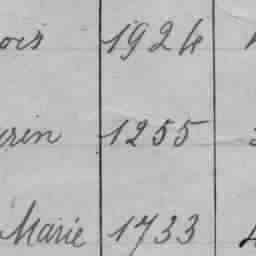 ois 1924
rin 1255
Marie 1733